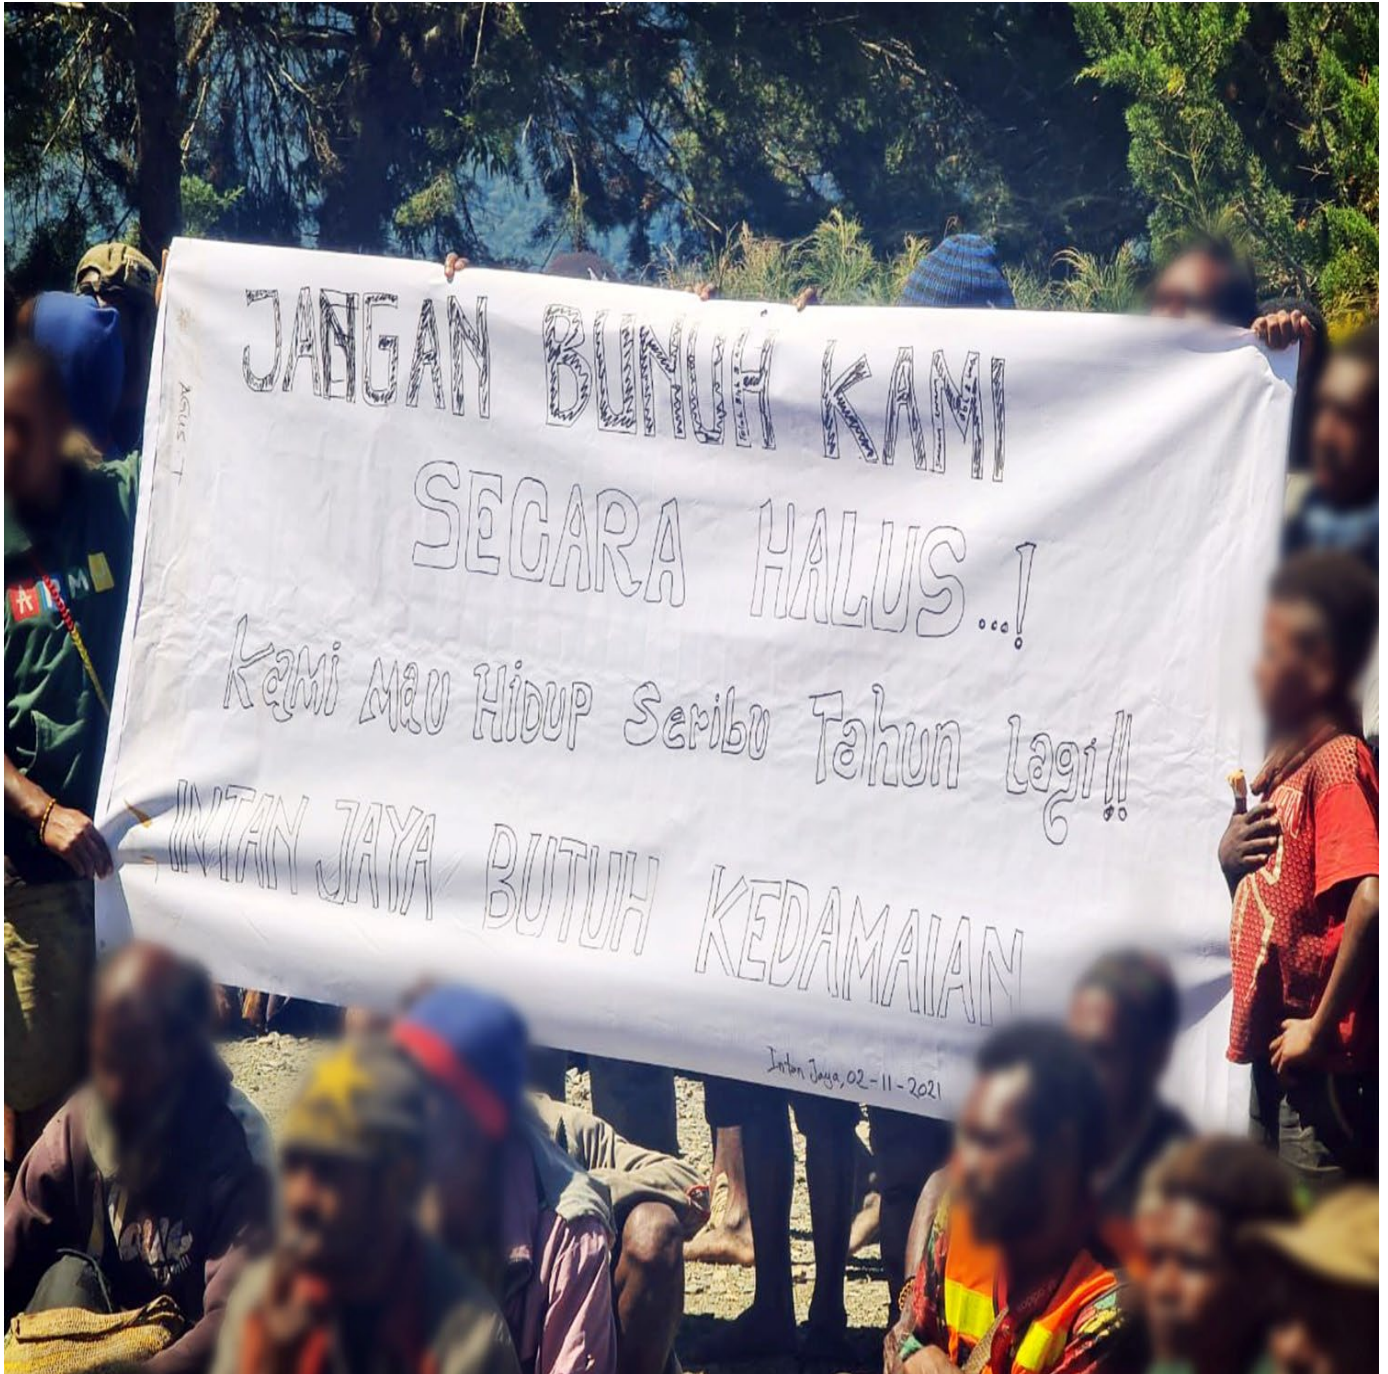 JANGAN BUNUH KAMI
SECARA HALUS...!
Kami Mau HiDUP Seribu Tahun Lagi!!
INTAN JAYA BUTUH KEDAMAIAN
Intan Jaya, 02-11-2021
AGUS.T